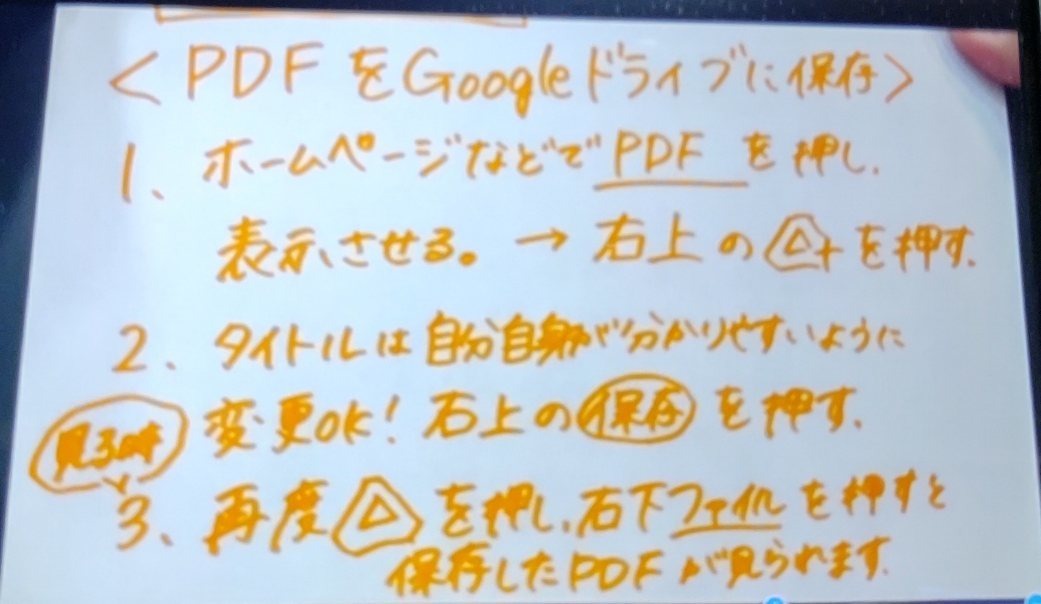 <PDFをGoogleドライブに保存>
1、ホームページなどでPDFを押し、
表示させる。→右上の△+を押す、
2、タイトルは自分自身が分かりやすいように
変更OK!右上の保存を押す、
見る時
3、再度△を押し、右下ファイルを押すと
保存したPDFが見られます、